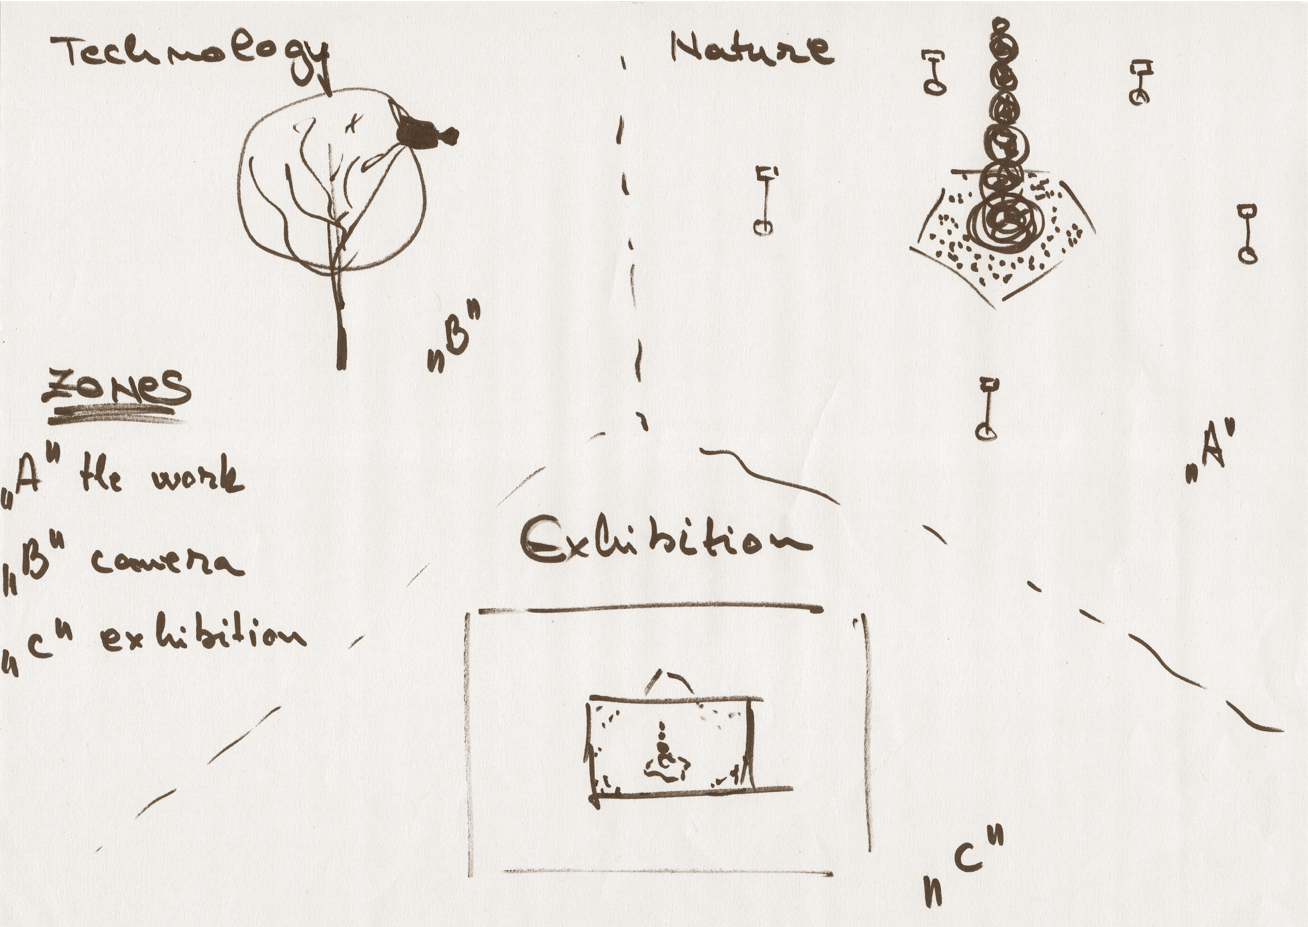 Technology
Nature
„B"
„A"
ZONES
„A" the work
„B" camera
„C" exhibition
Exhibition
„C"